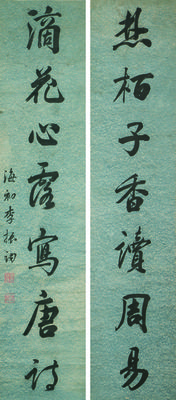 焚柏子香讀周易
滴花心露寫唐詩
海初李振鈞